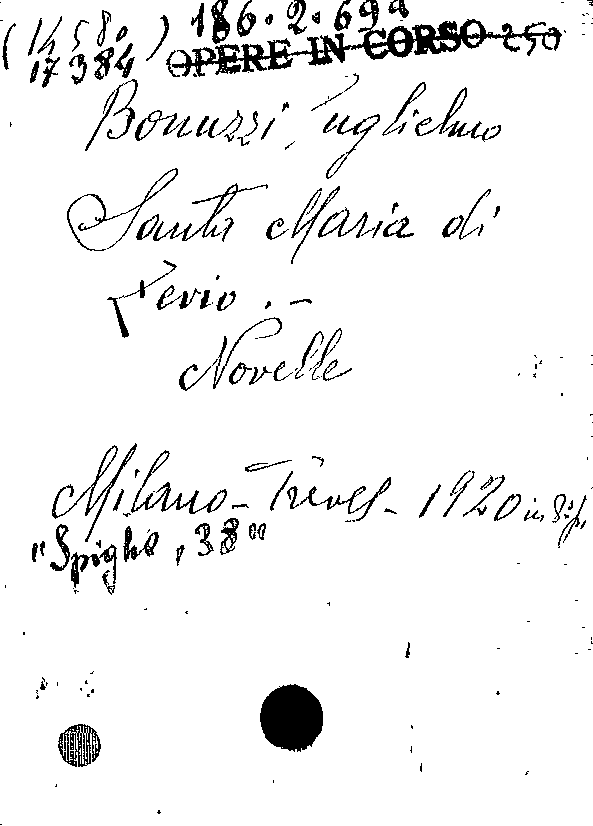 (14580) 186.2.699
17384 OPERE IN CORSO 250
Bonuzzi, Guglielmo
Santa Maria di
Levio. –
Novelle
Milano – Treves – 1920 in 8° p.
"Spighe, 38"